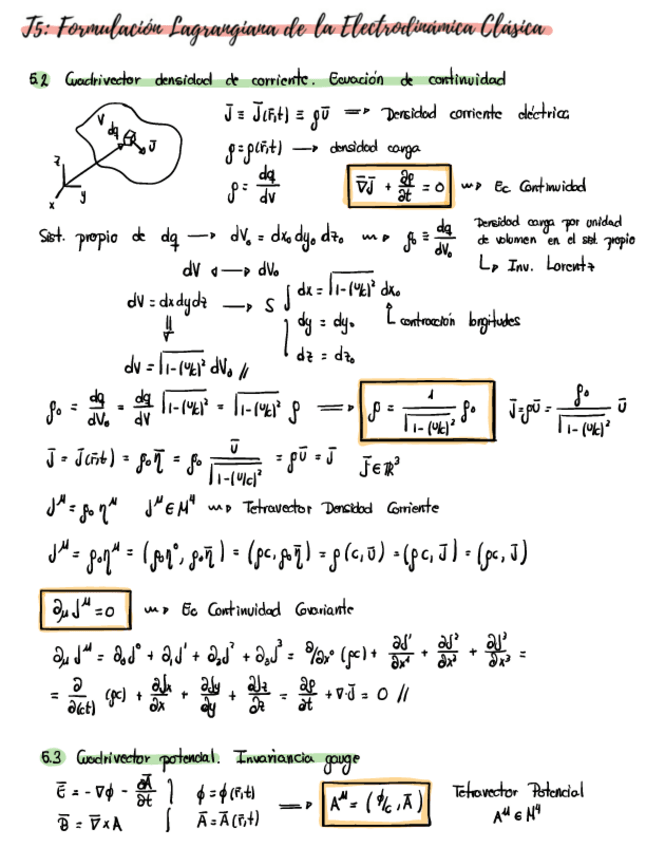 T5: Formulación Lagrangiana de la Electrodinámica Clásica
5.2 Cuadrivector densidad de corriente. Ecuación de continuidad
V dq J̄ z y x
J̄ ≡ J̄(r̄,t) ≡ ρū ⟹ Densidad corriente eléctrica
ρ = ρ(r̄,t) ⟶ densidad carga
ρ = dq/dV
∇̄J̄ + ∂ρ/∂t = 0 ⟿ Ec Continuidad
Sist. propio de dq ⟶ dV₀ = dx₀ dy₀ dz₀ ⟿ ρ₀ ≡ dq/dV₀
Densidad carga por unidad
de volumen en el sist propio
↳ Inv. Lorentz
dV ⟷ dV₀
dV = dx dy dz ⟶ S { dx = √(1-(u/c)²) dx₀
dy = dy₀
↳ contracción longitudes
dz = dz₀
dV = √(1-(u/c)²) dV₀ //
ρ₀ = dq/dV₀ = dq/dV √(1-(u/c)²) = √(1-(u/c)²) ρ ⟹ ρ = 1/√(1-(u/c)²) ρ₀ J̄=ρū = ρ₀/√(1-(u/c)²) ū
J̄ = J̄(r̄,t) = ρ₀η̄ = ρ₀ ū/√(1-(u/c)²) = ρū = J̄ J̄ ∈ ℝ³
J^μ = ρ₀ η^μ J^μ ∈ M⁴ ⟿ Tetravector Densidad Corriente
J^μ = ρ₀η^μ = (ρ₀η⁰, ρ₀η̄) = (ρc, ρ₀η̄) = ρ(c, ū) = (ρc, J̄) = (ρc, J̄)
∂_μ J^μ = 0 ⟿ Ec Continuidad Covariante
∂_μ J^μ = ∂₀J⁰ + ∂₁J¹ + ∂₂J² + ∂₃J³ = ∂/∂x⁰ (ρc) + ∂J¹/∂x¹ + ∂J²/∂x² + ∂J³/∂x³ =
= ∂/∂(ct) (ρc) + ∂Jx/∂x + ∂Jy/∂y + ∂Jz/∂z = ∂ρ/∂t + ∇·J̄ = 0 //
5.3 Cuadrivector potencial. Invariancia gauge
Ē = -∇ϕ - ∂Ā/∂t } ϕ = ϕ(r̄,t)
B̄ = ∇̄×A Ā = Ā(r̄,t)
⟹ A^μ = (ϕ/c, Ā)
Tetravector Potencial
A^μ ∈ M⁴